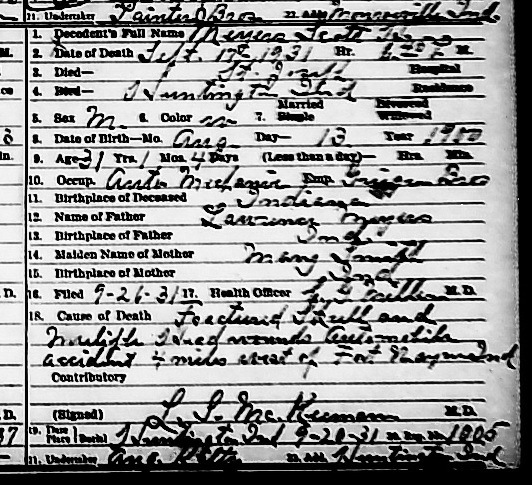 21. Undertaker Painter Bros. 22. Add. Monroeville Ind.
1. Decedent's Full Name Meyers Scott
2. Date of Death Sept. 17th 1931 Hr. M.
3. Died— St. Hospital
4. Died— Huntington Ind Residence
5. Sex M. 6. Color w 7. Married Single Divorced Widowed
8. Date of Birth—Mo. Aug. Day— 13 Year 1900
9. Age 31 Yrs. 1 Mos. 4 Days (Less than a day)— Hrs. Min.
10. Occup. Auto Mechanic Emp. Bros
11. Birthplace of Deceased Indiana
12. Name of Father Lawrence Meyers
13. Birthplace of Father Ind.
14. Maiden Name of Mother Mary
15. Birthplace of Mother Ind
16. Filed 9-26-31 17. Health Officer M. D.
18. Cause of Death Fractured Skull and
Multiple wounds Automobile
accident 4 miles west of Fort Wayne Ind
Contributory
(Signed) M. D.
19. Date Place Burial Huntington Ind 9-20-31 20. 1805
21. Undertaker 22. Add. Huntington Ind